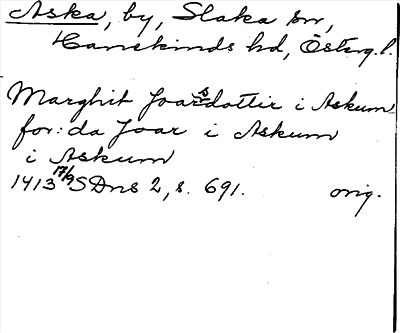 Aska, by, Slaka sn,
Hanekinds hd, Österg.l.
Marghit Joarsdottir i Askum
for: da Joar i Askum
i Askum
1413 17/9 SDns 2, s. 691. orig.